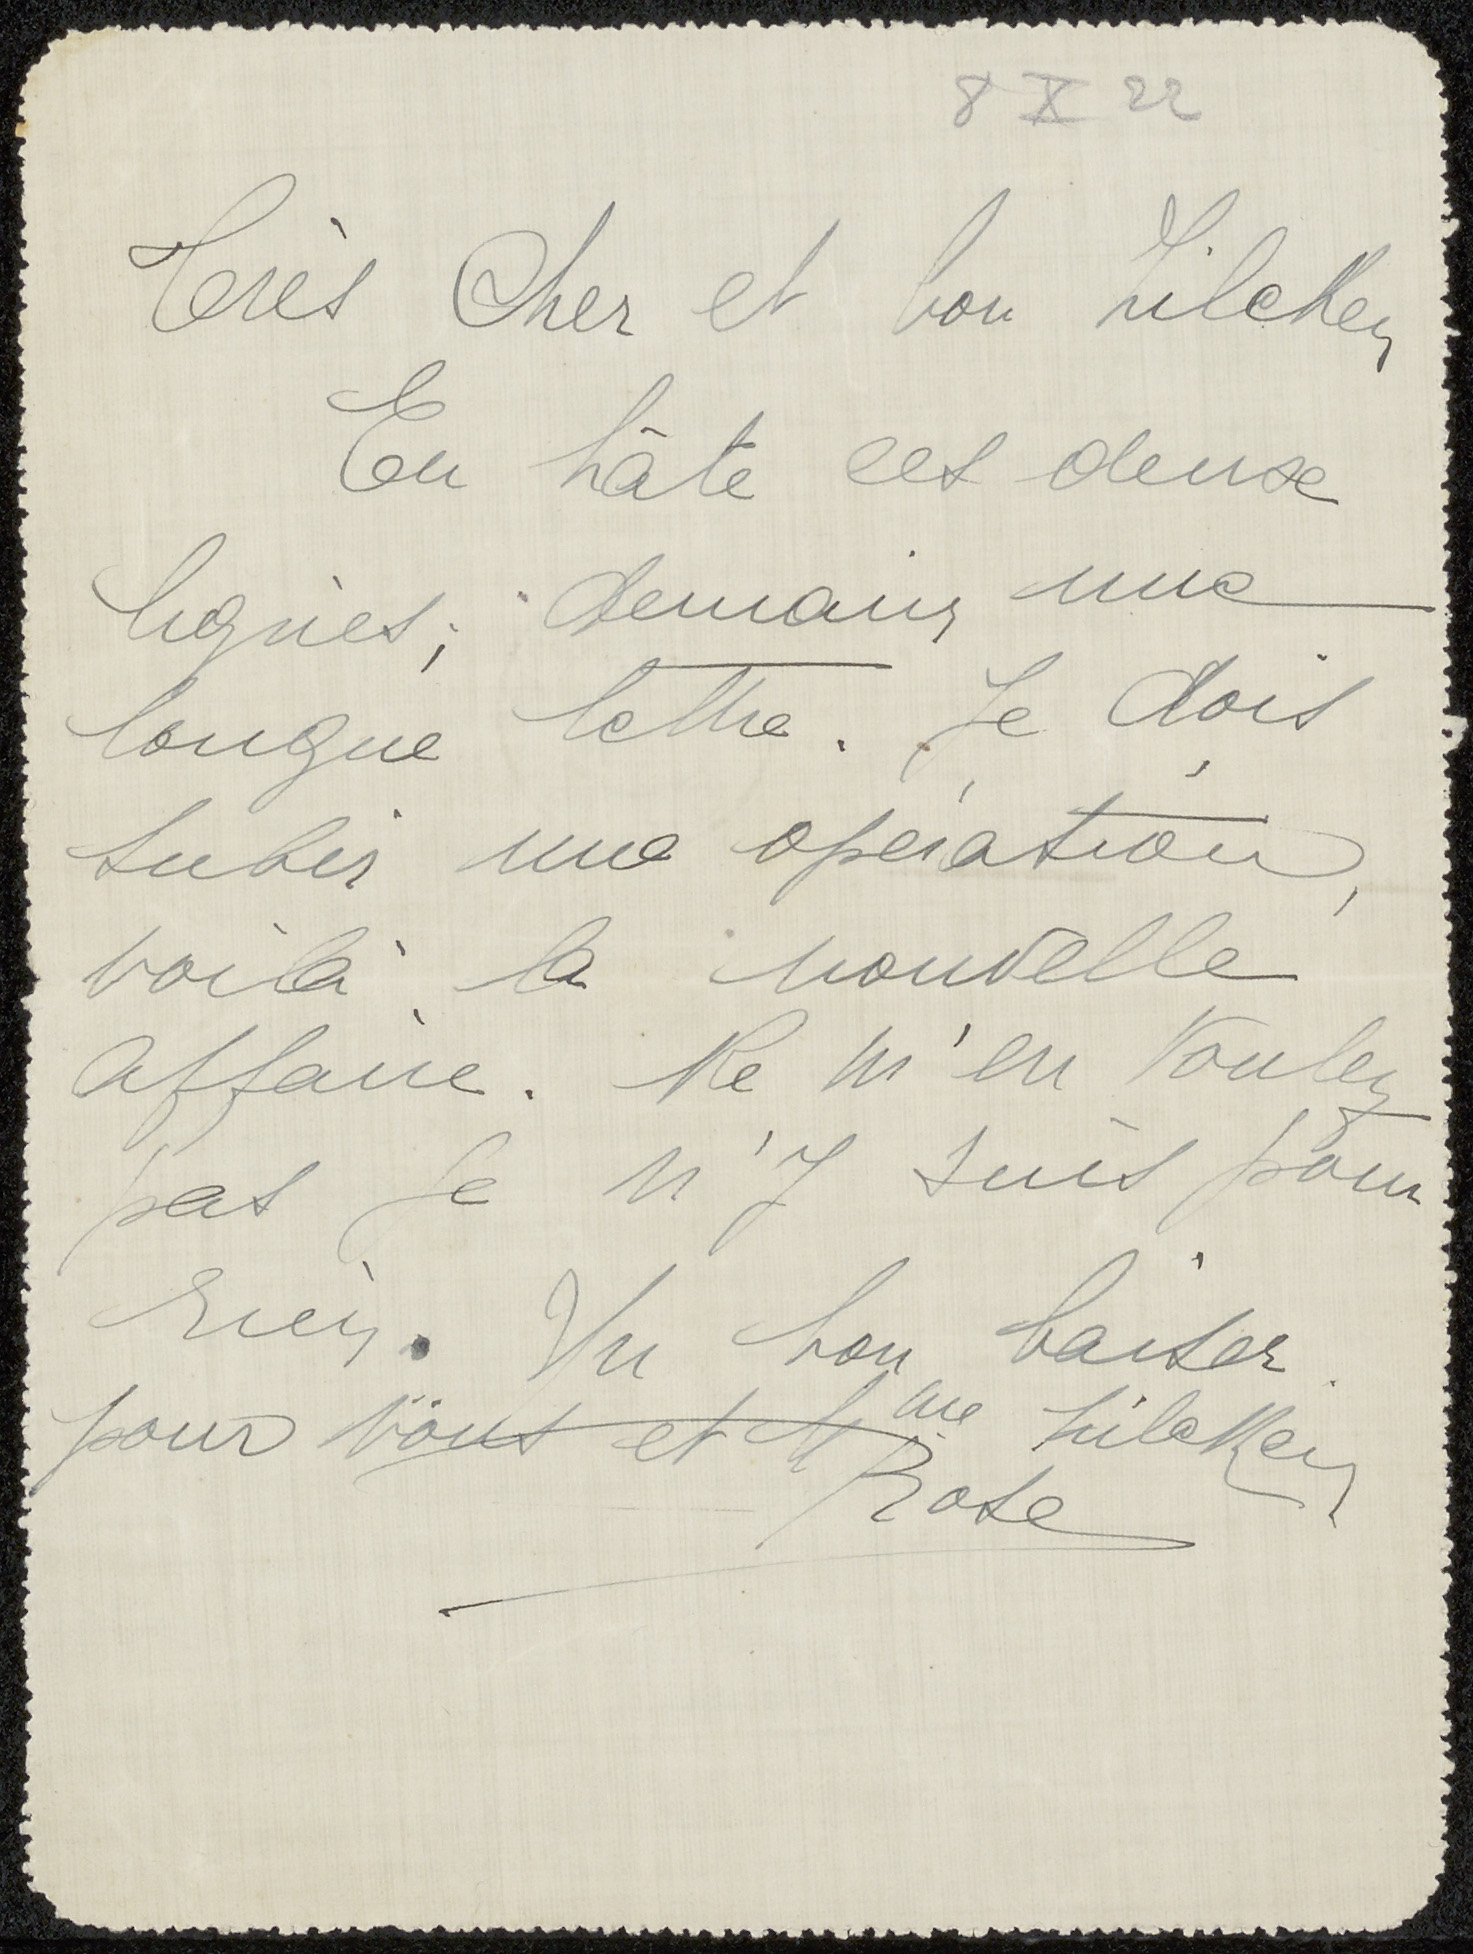 8 X 22
Très Cher et bon Zilcken
En hâte ces deux
lignes; demain une
longue lettre. Je dois
subir une opération,
voilà la nouvelle
affaire. Ne m'en voulez
pas je n'y suis pour
rien. Un bon baiser
pour vous et Mme Zilcken
Rose